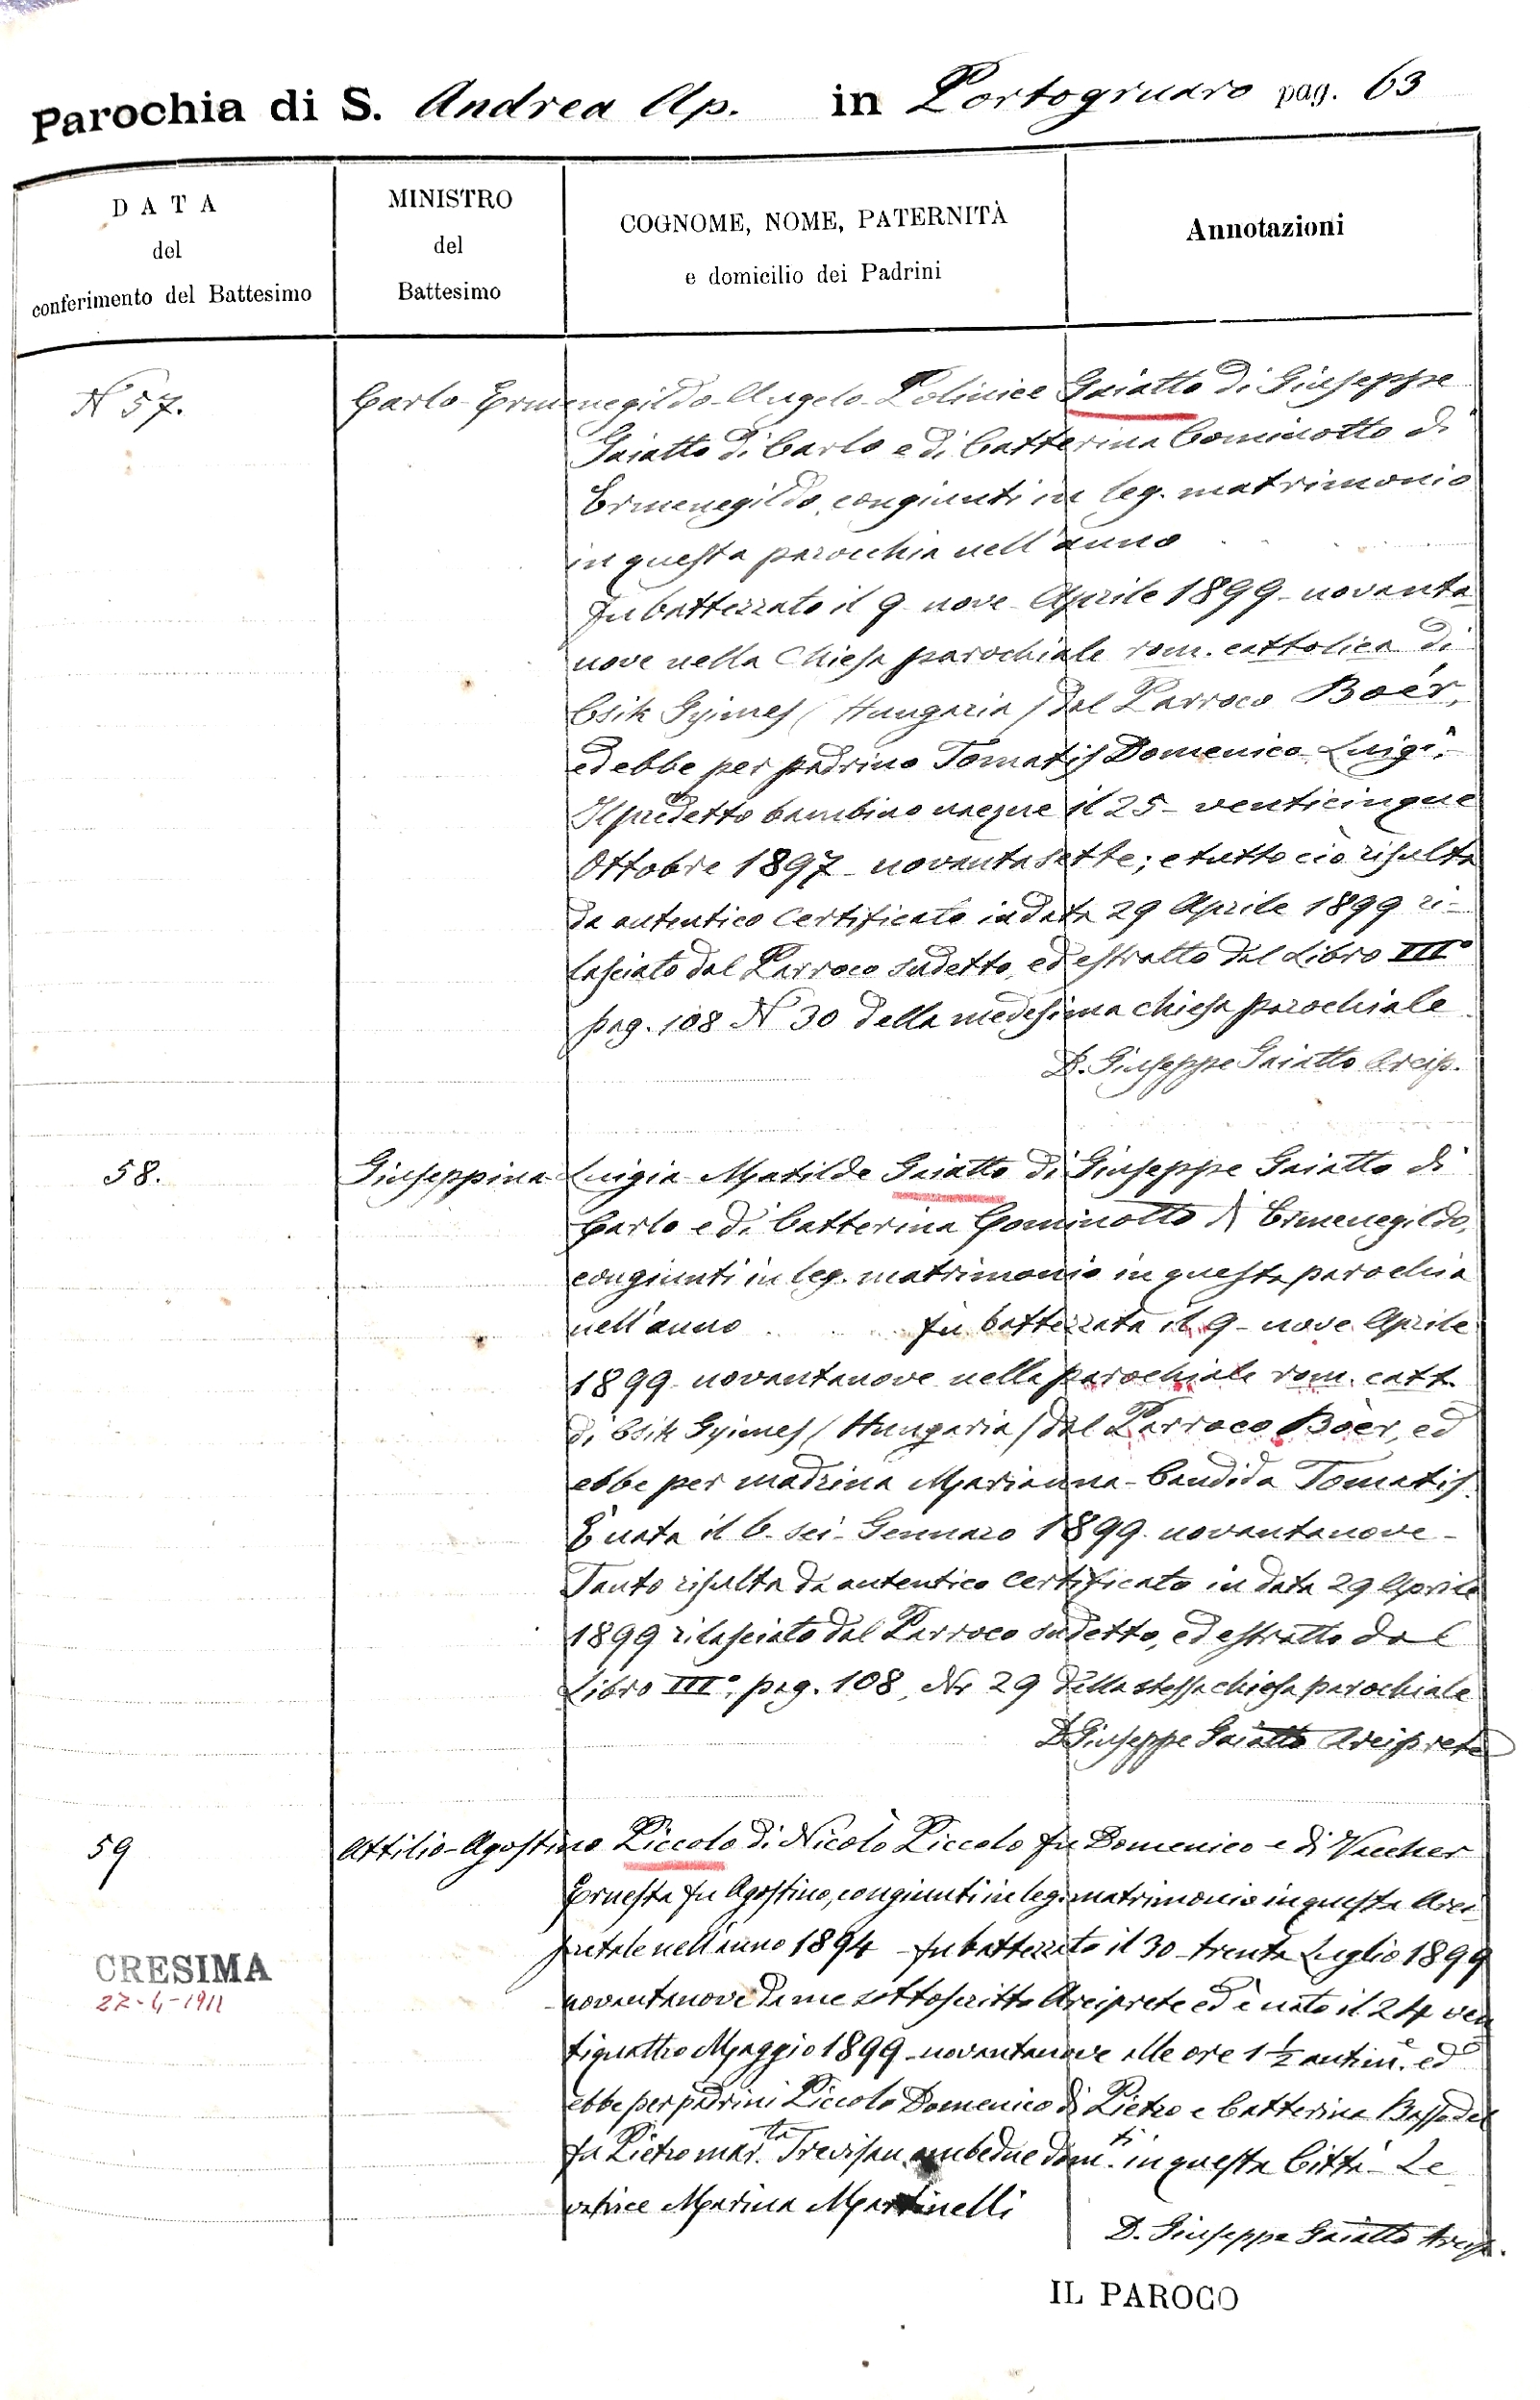 Parochia di S. Andrea Ap. in Portogruaro pag. 63
DATA
del
conferimento del Battesimo
MINISTRO
del
Battesimo
COGNOME, NOME, PATERNITÀ
e domicilio dei Padrini
Annotazioni
N 57.
Carlo-Ermenegildo-Angelo-Polinice Gaiatto di Giuseppe
Gaiatto di Carlo e di Catterina Cominotto di
Ermenegildo, congiunti in leg. matrimonio
in questa parochia nell'anno
Fu battezzato il 9 nove Aprile 1899 novanta-
nove nella Chiesa parochiale rom. cattolica di
Csik Gyimes (Hungaria) dal Parroco Boér,
ed ebbe per padrino Tomatis Domenico Luigi.
Il predetto bambino nacque il 25 - venticinque
Ottobre 1897 novantasette; e tutto ciò risulta
da autentico certificato in data 29 Aprile 1899 ri-
lasciato dal Parroco sudetto, ed estratto dal Libro III°
pag. 108 N 30 della medesima chiesa parochiale
D. Giuseppe Gaiatto Arcip.
58.
Giuseppina Luigia Matilde Gaiatto di Giuseppe Gaiatto di
Carlo e di Catterina Cominotto di Ermenegildo,
congiunti in leg. matrimonio in questa parochia
nell'anno fu battezzata il 9 - nove Aprile
1899 novantanove nella parochiale rom. catt.
di Csik Gyimes (Hungaria) dal Parroco Boèr, ed
ebbe per madrina Marianna-Candida Tomatis.
È nata il 6 - sei - Gennaro 1899 novantanove -
Tanto risulta da autentico certificato in data 29 Aprile
1899 rilasciato dal Parroco sudetto, ed estratto dal
Libro III°, pag. 108, Nr 29 della stessa chiesa parochiale
D. Giuseppe Gaiatto Arciprete
59
Attilio-Agostino Piccolo di Nicolò Piccolo fu Domenico e di Vucher
Ernesta fu Agostino, congiunti in leg. matrimonio in questa Arci-
pretale nell'anno 1894 - fu battezzato il 30 trenta Luglio 1899
novantanove da me sottoscritto Arciprete ed è nato il 24 ven
tiquattro Maggio 1899 novantanove alle ore 1 1/2 antim.e ed
ebbe per padrini Piccolo Domenico di Pietro e Catterina Bassedel
fu Pietro mar.ta Trevisan ambedue dom.ti in questa Città - Le
vatrice Marina Martinelli
D. Giuseppe Gaiatto Arcip.
CRESIMA
27-4-1911
IL PAROCO